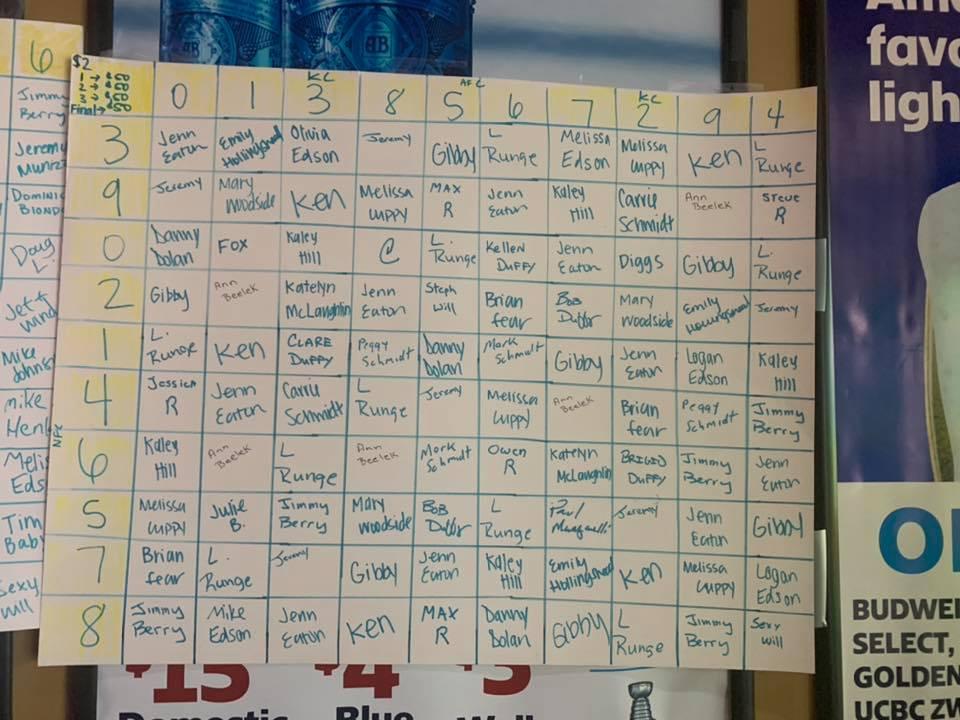 6
Jimmy Berry
Jeremy
Doug L.
Jeff
Mike
Mike
Tim
Sexy Will
$2
1 →
2 →
3 →
Final →
KC
AFC
KC
NFC
0 1 3 8 5 6 7 2 9 4
3 Jenn Eaton Emily Hollingshead Olivia Edson Jeremy Gibby L Runge Melissa Edson Melissa Wppy Ken L Runge
9 Jeremy Mary Woodside Ken Melissa Wppy MAX R Jenn Eaton Kaley Hill Carrie Schmidt Ann Beelek Steve R
0 Danny Dolan FOX Kaley Hill C L. Runge Kellen Duffy Jenn Eaton Diggs Gibby L. Runge
2 Gibby Ann Beelek Katelyn McLaughlin Jenn Eaton Steph Will Brian fear Bob Mary Woodside Emily Jeremy
1 L. Runge Ken CLARE DUFFY Peggy Schmidt Danny Dolan Mark Schmidt Gibby Jenn Eaton Logan Edson Kaley Hill
4 Jessica R Jenn Eaton Carrie Schmidt L Runge Jeremy Melissa Wppy Ann Beelek Brian fear Peggy Schmidt Jimmy Berry
6 Kaley Hill Ann Beelek L Runge Ann Beelek Mark Schmidt Owen R Katelyn McLaughlin BRIGID DUFFY Jimmy Berry Jenn Eaton
5 Melissa Wppy Julie B. Jimmy Berry Mary Woodside BOB L Runge Paul Jeremy Jenn Eaton Gibby
7 Brian fear L. Runge Jeremy Gibby Jenn Eaton Kaley Hill Emily Hollingshead Ken Melissa Wppy Logan Edson
8 Jimmy Berry Mike Edson Jenn Eaton Ken MAX R Danny Dolan Gibby L Runge Jimmy Berry Sexy Will
$15 $4 $3
Domestic Blue
favo
ligh
BUDWEI
SELECT,
GOLDEN
UCBC ZW